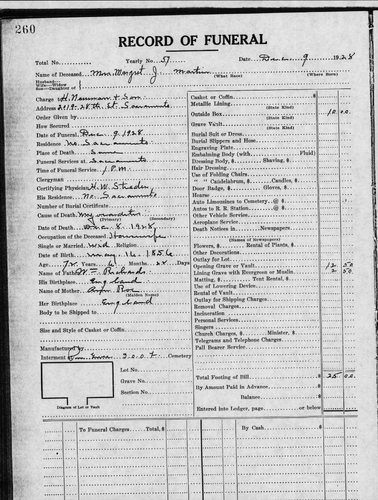 260
RECORD OF FUNERAL
Total No. Yearly No. 51 Date Dec. 9 1928
Name of Deceased Mrs. Margret J. Martin
(What Race) (Where Born)
Husband
Wife—Widow of
Son—Daughter
Charge H. Nauman & Son
Address 2019-28th St. Sacramento
Order Given by
How Secured
Date of Funeral Dec. 9, 1928
Residence No. Sacramento
Place of Death Same
Funeral Services at Sacramento
Time of Funeral Service, 1 P.M.
Clergyman
Certifying Physician H. W.
His Residence No. Sacramento
Number of Burial Certificate
Cause of Death
(Primary) (Secondary)
Date of Death Dec 8, 1928,
Occupation of the Deceased Housewife
Single or Married Wid Religion
Date of Birth May 14, 1856
Age 72 Years 6 Months 24 Days
Name of Father Richards
His Birthplace England
Name of Mother Roe
(Maiden Name)
Her Birthplace England
Body to be Shipped to
Size and Style of Casket or Coffin
Manufactured by
Interment I.O.O.F. Cemetery
Lot No.
Grave No.
Section No.
Diagram of Lot or Vault
Casket or Coffin
Metallic Lining
(State Kind)
Outside Box 10 00
(State Kind)
Grave Vault
(State Kind)
Burial Suit or Dress
Burial Slippers and Hose
Engraving Plate
Embalming Body (with Fluid)
Dressing Body, $ Shaving, $
Hair Dressing
Use of Folding Chairs
" " Candelabrum, $ Candles, $
Door Badge, $ Gloves, $
Hearse
Auto Limousines to Cemetery @ $
Autos to R. R. Station @ $
Other Vehicle Service
Aeroplane Service
Death Notices in Newspapers
(Names of Newspapers)
Flowers, $ Rental of Plants, $
Other Decorations
Outlay for Lot
Opening Grave or Vault 12 50
Lining Grave with Evergreen or Muslin 2 50
Matting, $ Tent Rental, $
Use of Lowering Device
Rental of Vault
Outlay for Shipping Charges
Removal Charges
Incineration
Personal Services
Singers
Church Charges, $ Minister, $
Telegrams and Telephone Charges
Pall Bearer Service
Total Footing of Bill $ 25 00
By Amount Paid in Advance
Balance
Entered into Ledger, page or below
To Funeral Charges Total, $ By Cash